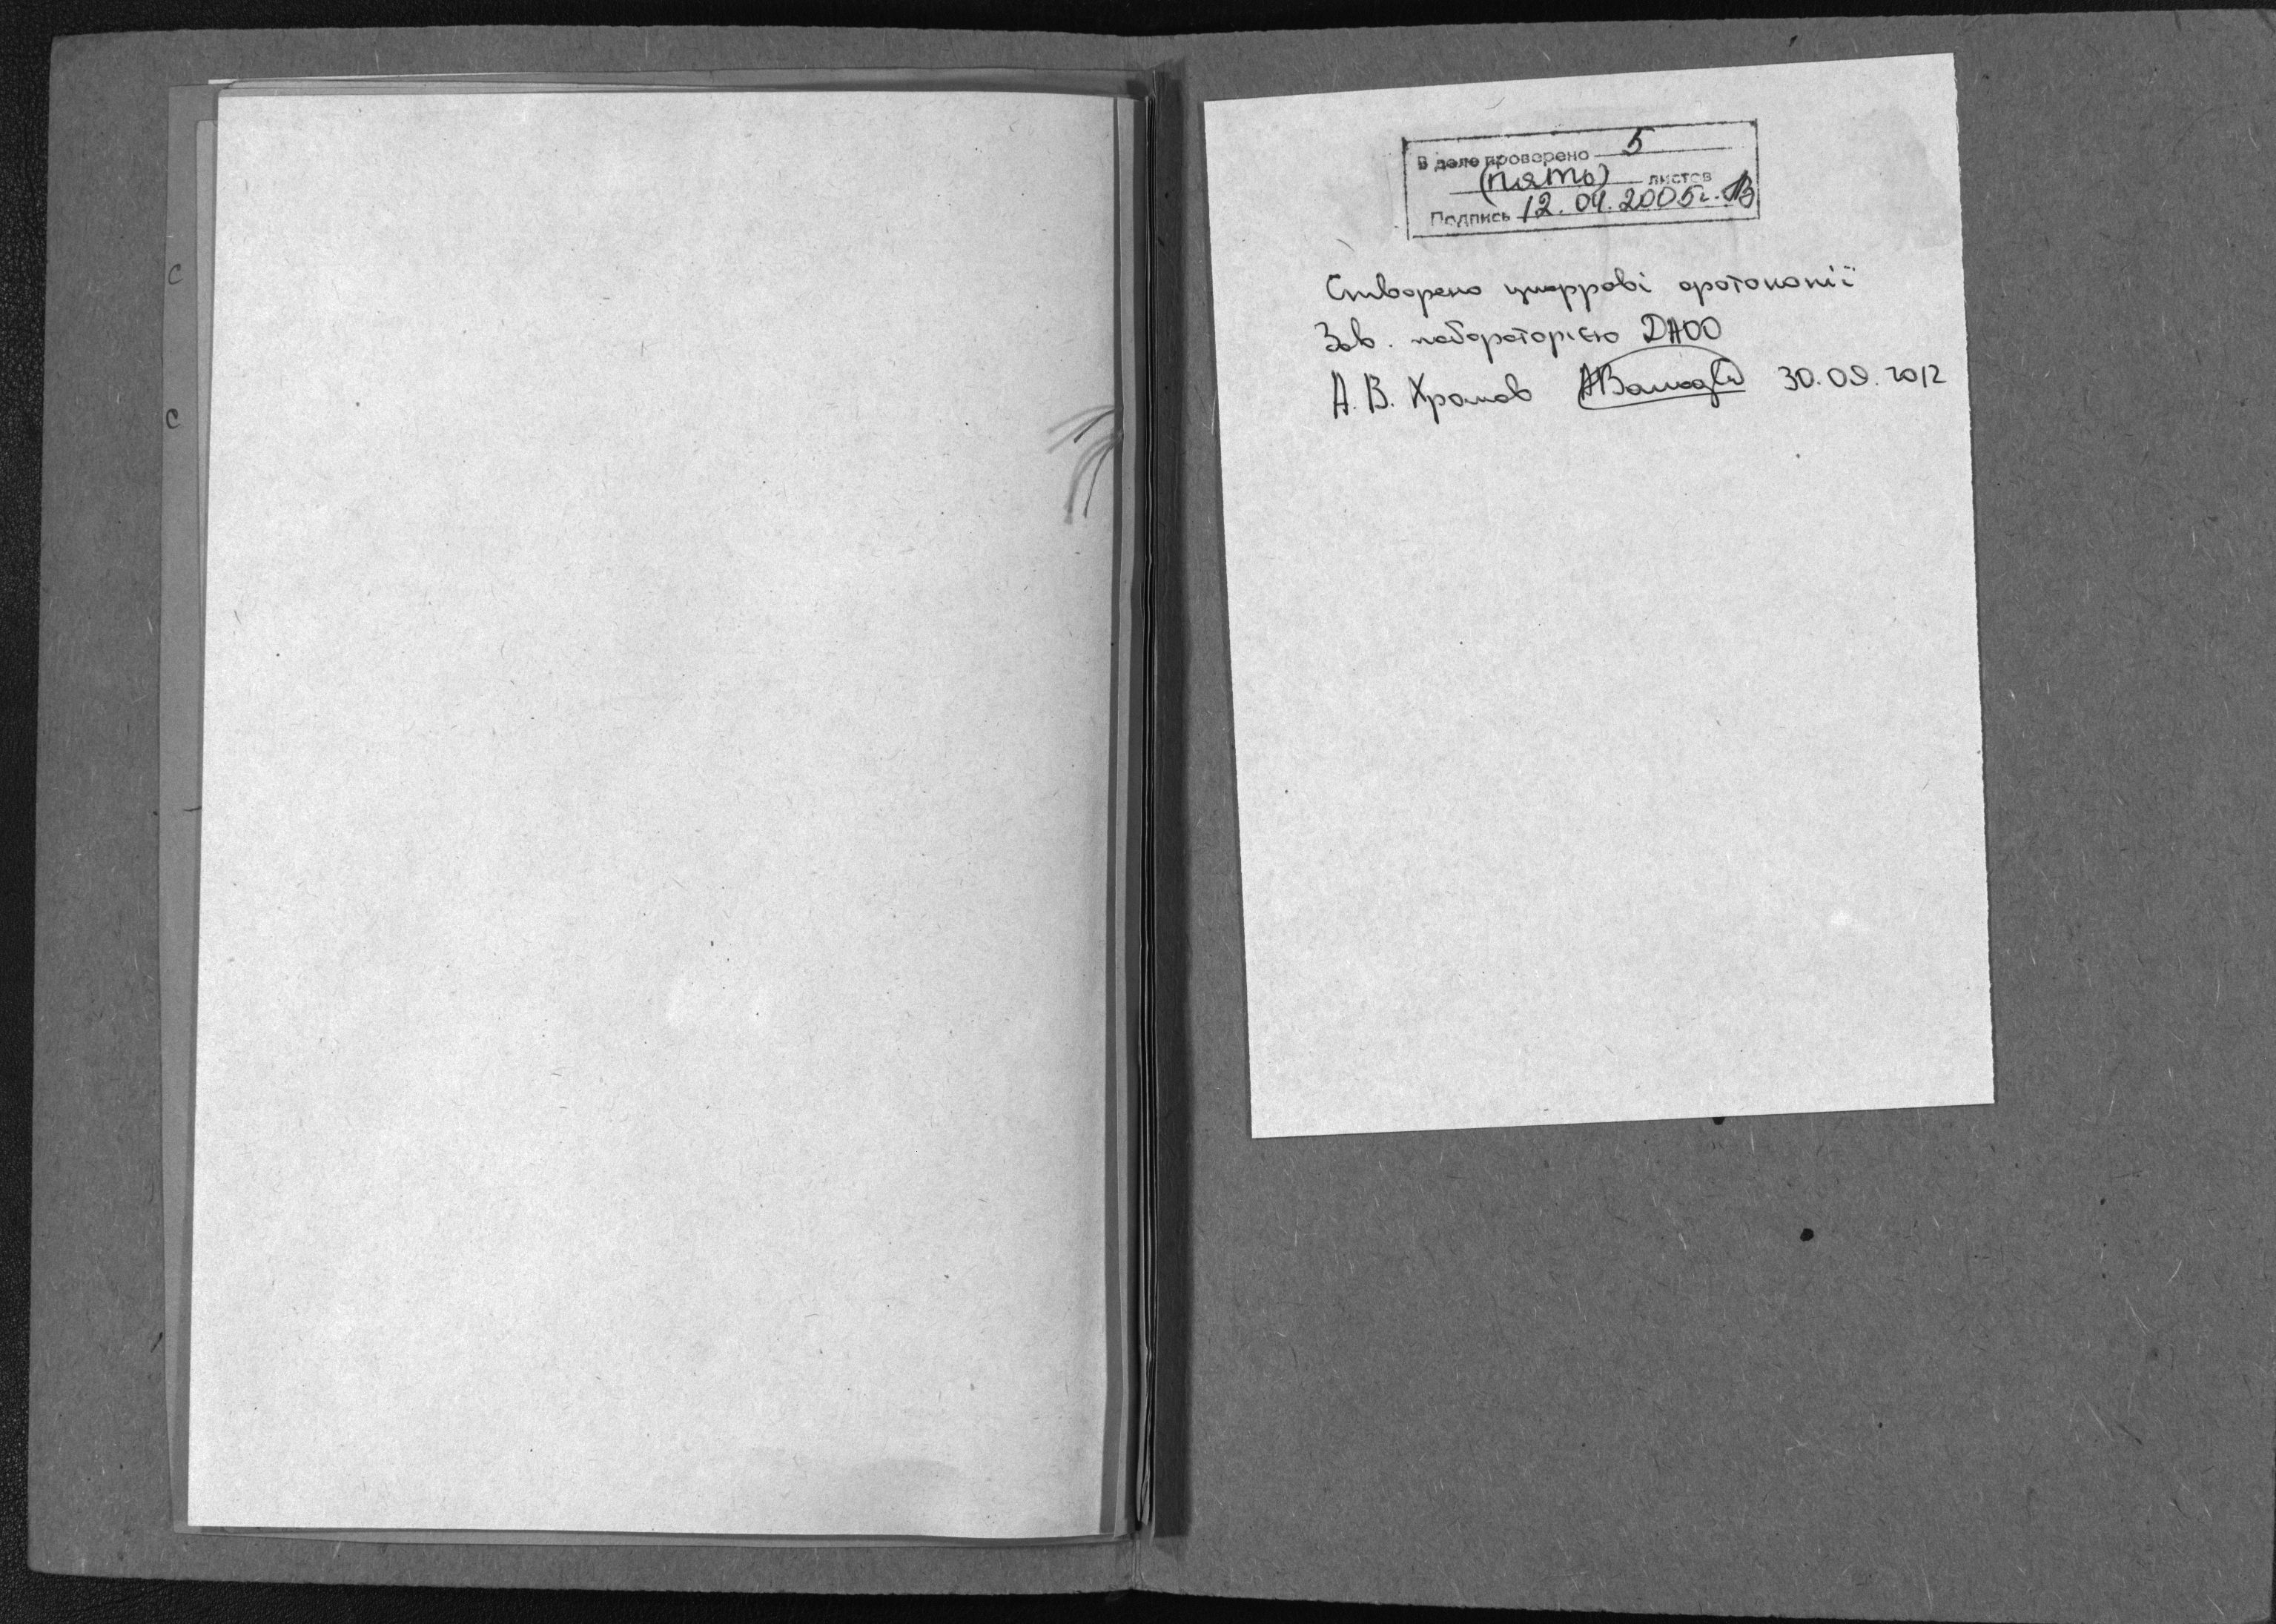 с
с
В деле проверено 5
(пять) листов
Подпись 12.04.2005г.
Створено цифрові фотокопії
Зав. лабораторією ДАОО
А. В. Храмов 30.09.2012